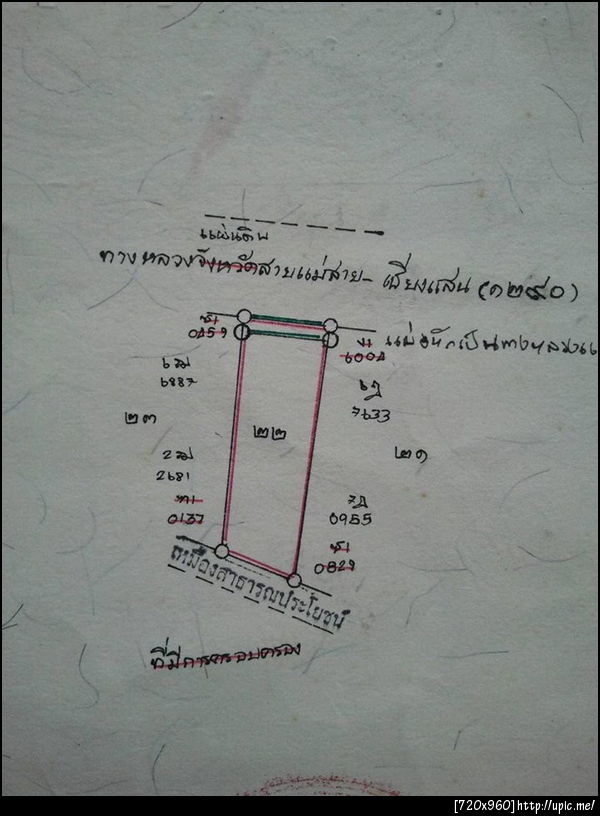 แผ่นดิน
ทางหลวงจังหวัดสายแม่สาย - เชียงแสน (๑๒๙๐)
0459
6004
แบ่งหักเป็นทางหลวง
6887
7633
๒๓
๒๒
๒๑
2681
0137
0955
0829
เหมืองสาธารณประโยชน์
ที่มีการครอบครอง
[720x960]http://upic.me/